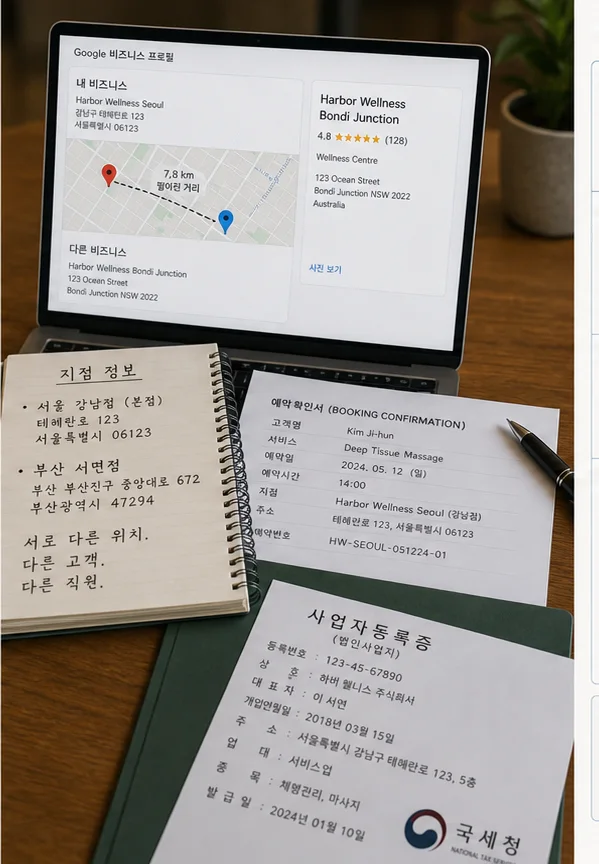 Google 비즈니스 프로필
내 비즈니스
Harbor Wellness Seoul
강남구 테헤란로 123
서울특별시 06123
7,8 km
떨어진 거리
다른 비즈니스
Harbor Wellness Bondi Junction
123 Ocean Street
Bondi Junction NSW 2022
Harbor Wellness
Bondi Junction
4.8 ★★★★★ (128)
Wellness Centre
123 Ocean Street
Bondi Junction NSW 2022
Australia
사진 보기
지점 정보
• 서울 강남점 (본점)
테헤란로 123
서울특별시 06123
• 부산 서면점
부산 부산진구 중앙대로 672
부산광역시 47294
서로 다른 위치.
다른 고객.
다른 직원.
예약 확인서 (BOOKING CONFIRMATION)
고객명 Kim Ji-hun
서비스 Deep Tissue Massage
예약일 2024. 05. 12 (일)
예약시간 14:00
지점 Harbor Wellness Seoul (강남점)
주소 테헤란로 123, 서울특별시 06123
예약번호 HW-SEOUL-051224-01
사업자등록증
(법인사업지)
등록번호 : 123-45-67890
상 호 : 하버 웰니스 주식회서
대 표 자 : 이 서연
개입연월일 : 2018년 03월 15일
주 소 : 서울특별시 강남구 테헤란로 123, 5층
업 대 : 서비스업
종 목 : 체형관리, 마사지
발 급 일 : 2024년 01월 10일
국세청
NATIONAL TAX